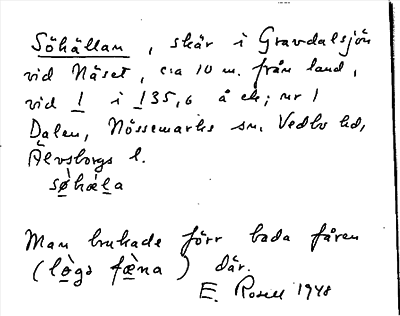 Söhällan, skär i Gravdalsjön
vid Näset, c:a 10 m. från land,
vid 1 i 135,6 å ek; nr 1
Dalen, Nössemarks sn. Vedbo hd,
Älvsborgs l.
sø̀hæla
Man brukade förr bada fåren
(lòga fæ̀na) där.
E. Rosell 1948